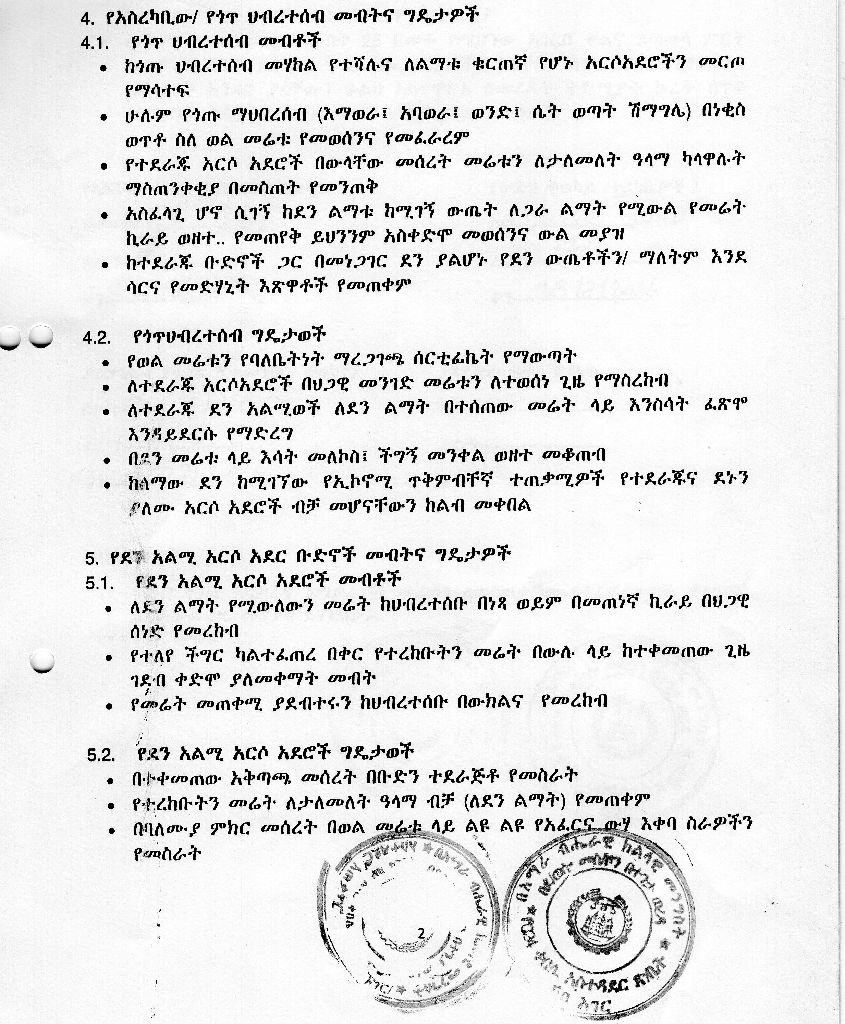 4. የአስረካቢው/ የጎጥ ህብረተሰብ መብትና ግዴታዎች
4.1. የጎጥ ህብረተሰብ መብቶች
• ከጎጡ ህብረተሰብ መሃከል የተሻሉና ለልማቱ ቁርጠኛ የሆኑ አርሶአደሮችን መርጦ
የማሳተፍ
• ሁሉም የጎጡ ማህበረሰብ (እማወራ፤ አባወራ፤ ወንድ፤ ሴት ወጣት ሽማግሌ) በነቂስ
ወጥቶ ስለ ወል መሬቱ የመወሰንና የመፈራረም
• የተደራጁ አርሶ አደሮች በውላቸው መሰረት መሬቱን ለታለመለት ዓላማ ካላዋሉት
ማስጠንቀቂያ በመስጠት የመንጠቅ
• አስፈላጊ ሆኖ ሲገኝ ከደን ልማቱ ከሚገኝ ውጤት ለጋራ ልማት የሚውል የመሬት
ኪራይ ወዘተ.. የመጠየቅ ይህንንም አስቀድሞ መወሰንና ውል መያዝ
• ከተደራጁ ቡድኖች ጋር በመነጋገር ደን ያልሆኑ የደን ውጤቶችን/ ማለትም እንደ
ሳርና የመድሃኒት እጽዋቶች የመጠቀም
4.2. የጎጥህብረተሰብ ግዴታወች
• የወል መሬቱን የባለቤትነት ማረጋገጫ ሰርቲፊኬት የማውጣት
• ለተደራጁ አርሶአደሮች በህጋዊ መንገድ መሬቱን ለተወሰነ ጊዜ የማስረከብ
• ለተደራጁ ደን አልሚወች ለደን ልማት በተሰጠው መሬት ላይ እንስሳት ፈጽሞ
እንዳይደርሱ የማድረግ
• በደን መሬቱ ላይ እሳት መለኮስ፤ ችግኝ መንቀል ወዘተ መቆጠብ
• ከለማው ደን ከሚገኘው የኢኮኖሚ ጥቅምብቸኛ ተጠቃሚዎች የተደራጁና ደኑን
ያለሙ አርሶ አደሮች ብቻ መሆናቸውን ከልብ መቀበል
5. የደን አልሚ አርሶ አደር ቡድኖች መብትና ግዴታዎች
5.1. የደን አልሚ አርሶ አደሮች መብቶች
• ለደን ልማት የሚውለውን መሬት ከህብረተሰቡ በነጻ ወይም በመጠነኛ ኪራይ በህጋዊ
ሰነድ የመረከብ
• የተለየ ችግር ካልተፈጠረ በቀር የተረከቡትን መሬት በውሉ ላይ ከተቀመጠው ጊዜ
ገደብ ቀድሞ ያለመቀማት መብት
• የመሬት መጠቀሚ ያደብተሩን ከህብረተሰቡ በውክልና የመረከብ
5.2. የደን አልሚ አርሶ አደሮች ግዴታወች
• በተቀመጠው አቅጣጫ መሰረት በቡድን ተደራጅቶ የመስራት
• የተረከቡትን መሬት ለታለመለት ዓላማ ብቻ (ለደን ልማት) የመጠቀም
• በባለሙያ ምክር መሰረት በወል መሬቱ ላይ ልዩ ልዩ የአፈርና ውሃ እቀባ ስራዎችን
የመስራት
2
በአማራ ብሔራዊ ክልላዊ መንግስት